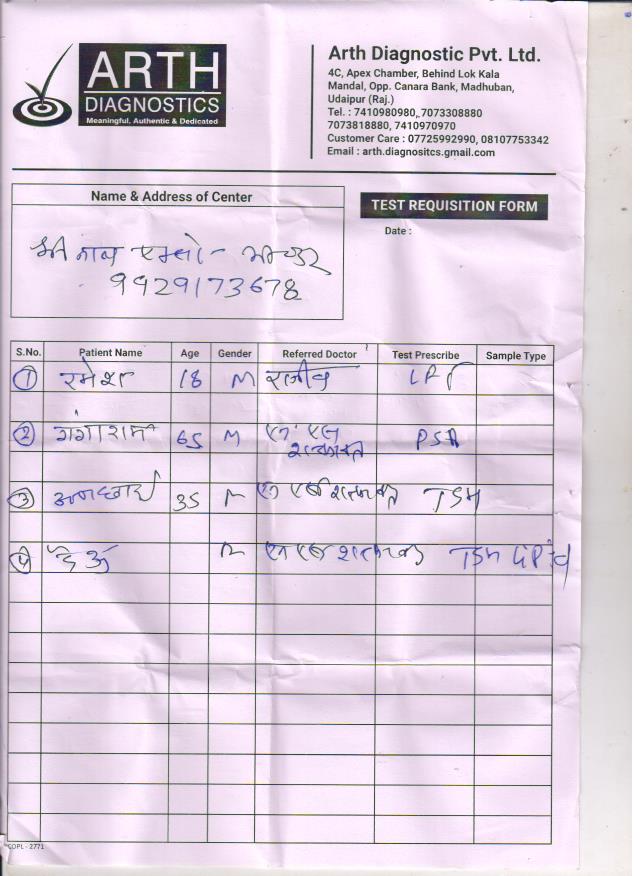 ARTH
DIAGNOSTICS
Meaningful, Authentic & Dedicated
Arth Diagnostic Pvt. Ltd.
4C, Apex Chamber, Behind Lok Kala
Mandal, Opp. Canara Bank, Madhuban,
Udaipur (Raj.)
Tel. : 7410980980, 7073308880
7073818880, 7410970970
Customer Care : 07725992990, 08107753342
Email : arth.diagnositcs.gmail.com
Name & Address of Center
TEST REQUISITION FORM
Date :
श्री नाथ
9929173678
S.No. Patient Name Age Gender Referred Doctor Test Prescribe Sample Type
1 रमेश 18 M राजीव LFT
2 गंगाराम 65 M एन एल शक्तावत PSA
3 35 M शक्तावत TSH
4 M शक्तावत TSH
COPL - 2771